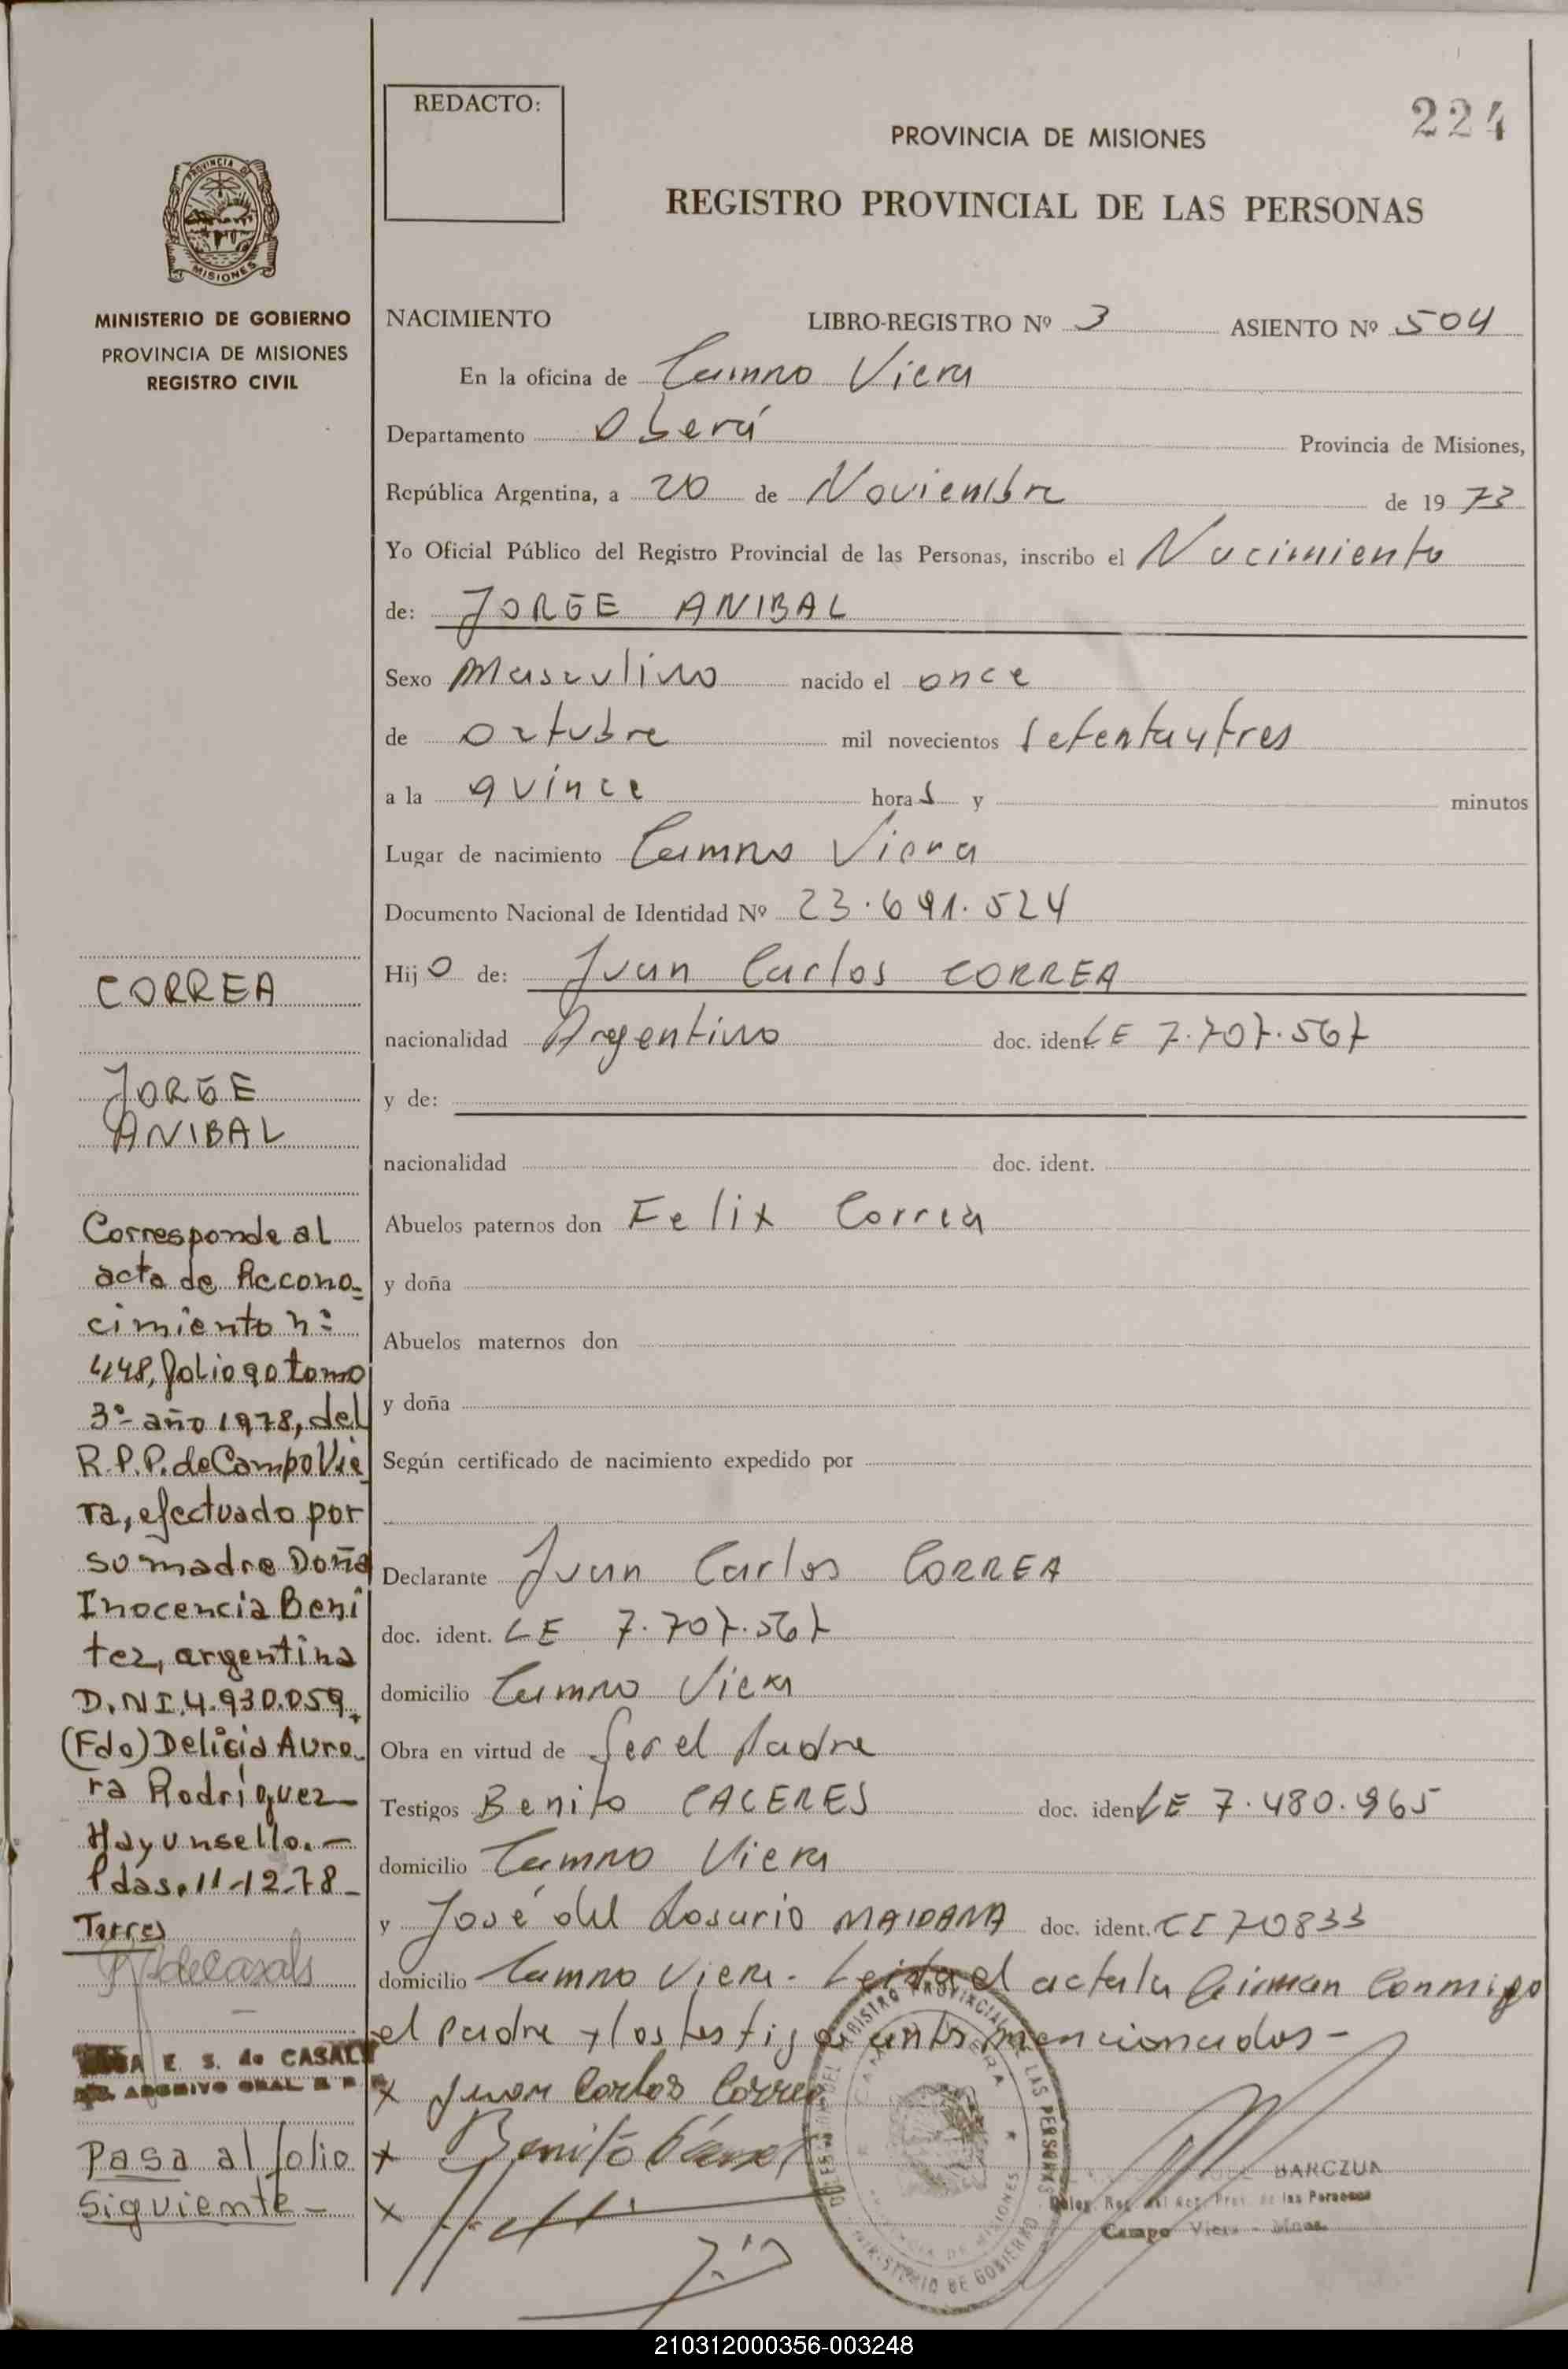 REDACTO:
224
PROVINCIA DE MISIONES
REGISTRO PROVINCIAL DE LAS PERSONAS
PROVINCIA DE
MISIONES
MINISTERIO DE GOBIERNO
PROVINCIA DE MISIONES
REGISTRO CIVIL
NACIMIENTO LIBRO-REGISTRO Nº 3 ASIENTO Nº 504
En la oficina de Campo Viera
Departamento Oberá Provincia de Misiones,
República Argentina, a 20 de Noviembre de 1973
Yo Oficial Público del Registro Provincial de las Personas, inscribo el Nacimiento
de: JORGE ANIBAL
Sexo Masculino nacido el once
de octubre mil novecientos setentaytres
a la quince horas y minutos
Lugar de nacimiento Campo Viera
Documento Nacional de Identidad Nº 23.691.524
Hijo de: Juan Carlos CORREA
nacionalidad Argentino doc. ident. LE 7.707.567
y de:
nacionalidad doc. ident.
Abuelos paternos don Felix Correa
y doña
Abuelos maternos don
y doña
Según certificado de nacimiento expedido por
Declarante Juan Carlos CORREA
doc. ident. LE 7.707.567
domicilio Campo Viera
Obra en virtud de ser el Padre
Testigos Benito CACERES doc. ident. LE 7.480.965
domicilio Campo Viera
y José del Rosario MAIDANA doc. ident. CI 70833
domicilio Campo Viera - Leida el acta la firman Conmigo
el Padre y los testigos antes mencionados -
x Juan Carlos Correa
x Benito
x
BARCZUK
de las Personas
Campo Viera - Mnes.
CORREA
JORGE
ANIBAL
Corresponde al
acta de Recono-
cimiento nº
448, folio 90 tomo
3º año 1978, del
R.P.P. de Campo Vie
ra, efectuado por
su madre Doña
Inocencia Beni
tez, argentina
D.N.I. 4.930.059.
(Fdo) Delicia Auro-
ra Rodríguez
Hay un sello.-
Pdas. 11-12-78-
Torres
E. S. de CASALS
ARCHIVO GRAL
Pasa al folio
Siguiente-
210312000356-003248